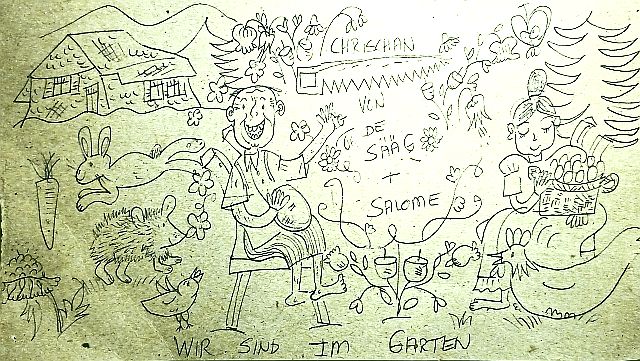 CHRISCHAN
VON
DE
SÄÄG
+
SALOME
WIR SIND IM GARTEN